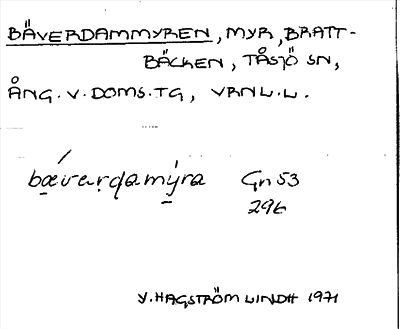 BÄVERDAMMYREN, MYR, BRATT-
BÄCKEN, TÅSJÖ SN,
ÅNG. V. DOMS. TG, VRNL.L.
bævaṛḍamýra Gn 53
296
Y. HAGSTRÖM LINDH 1971